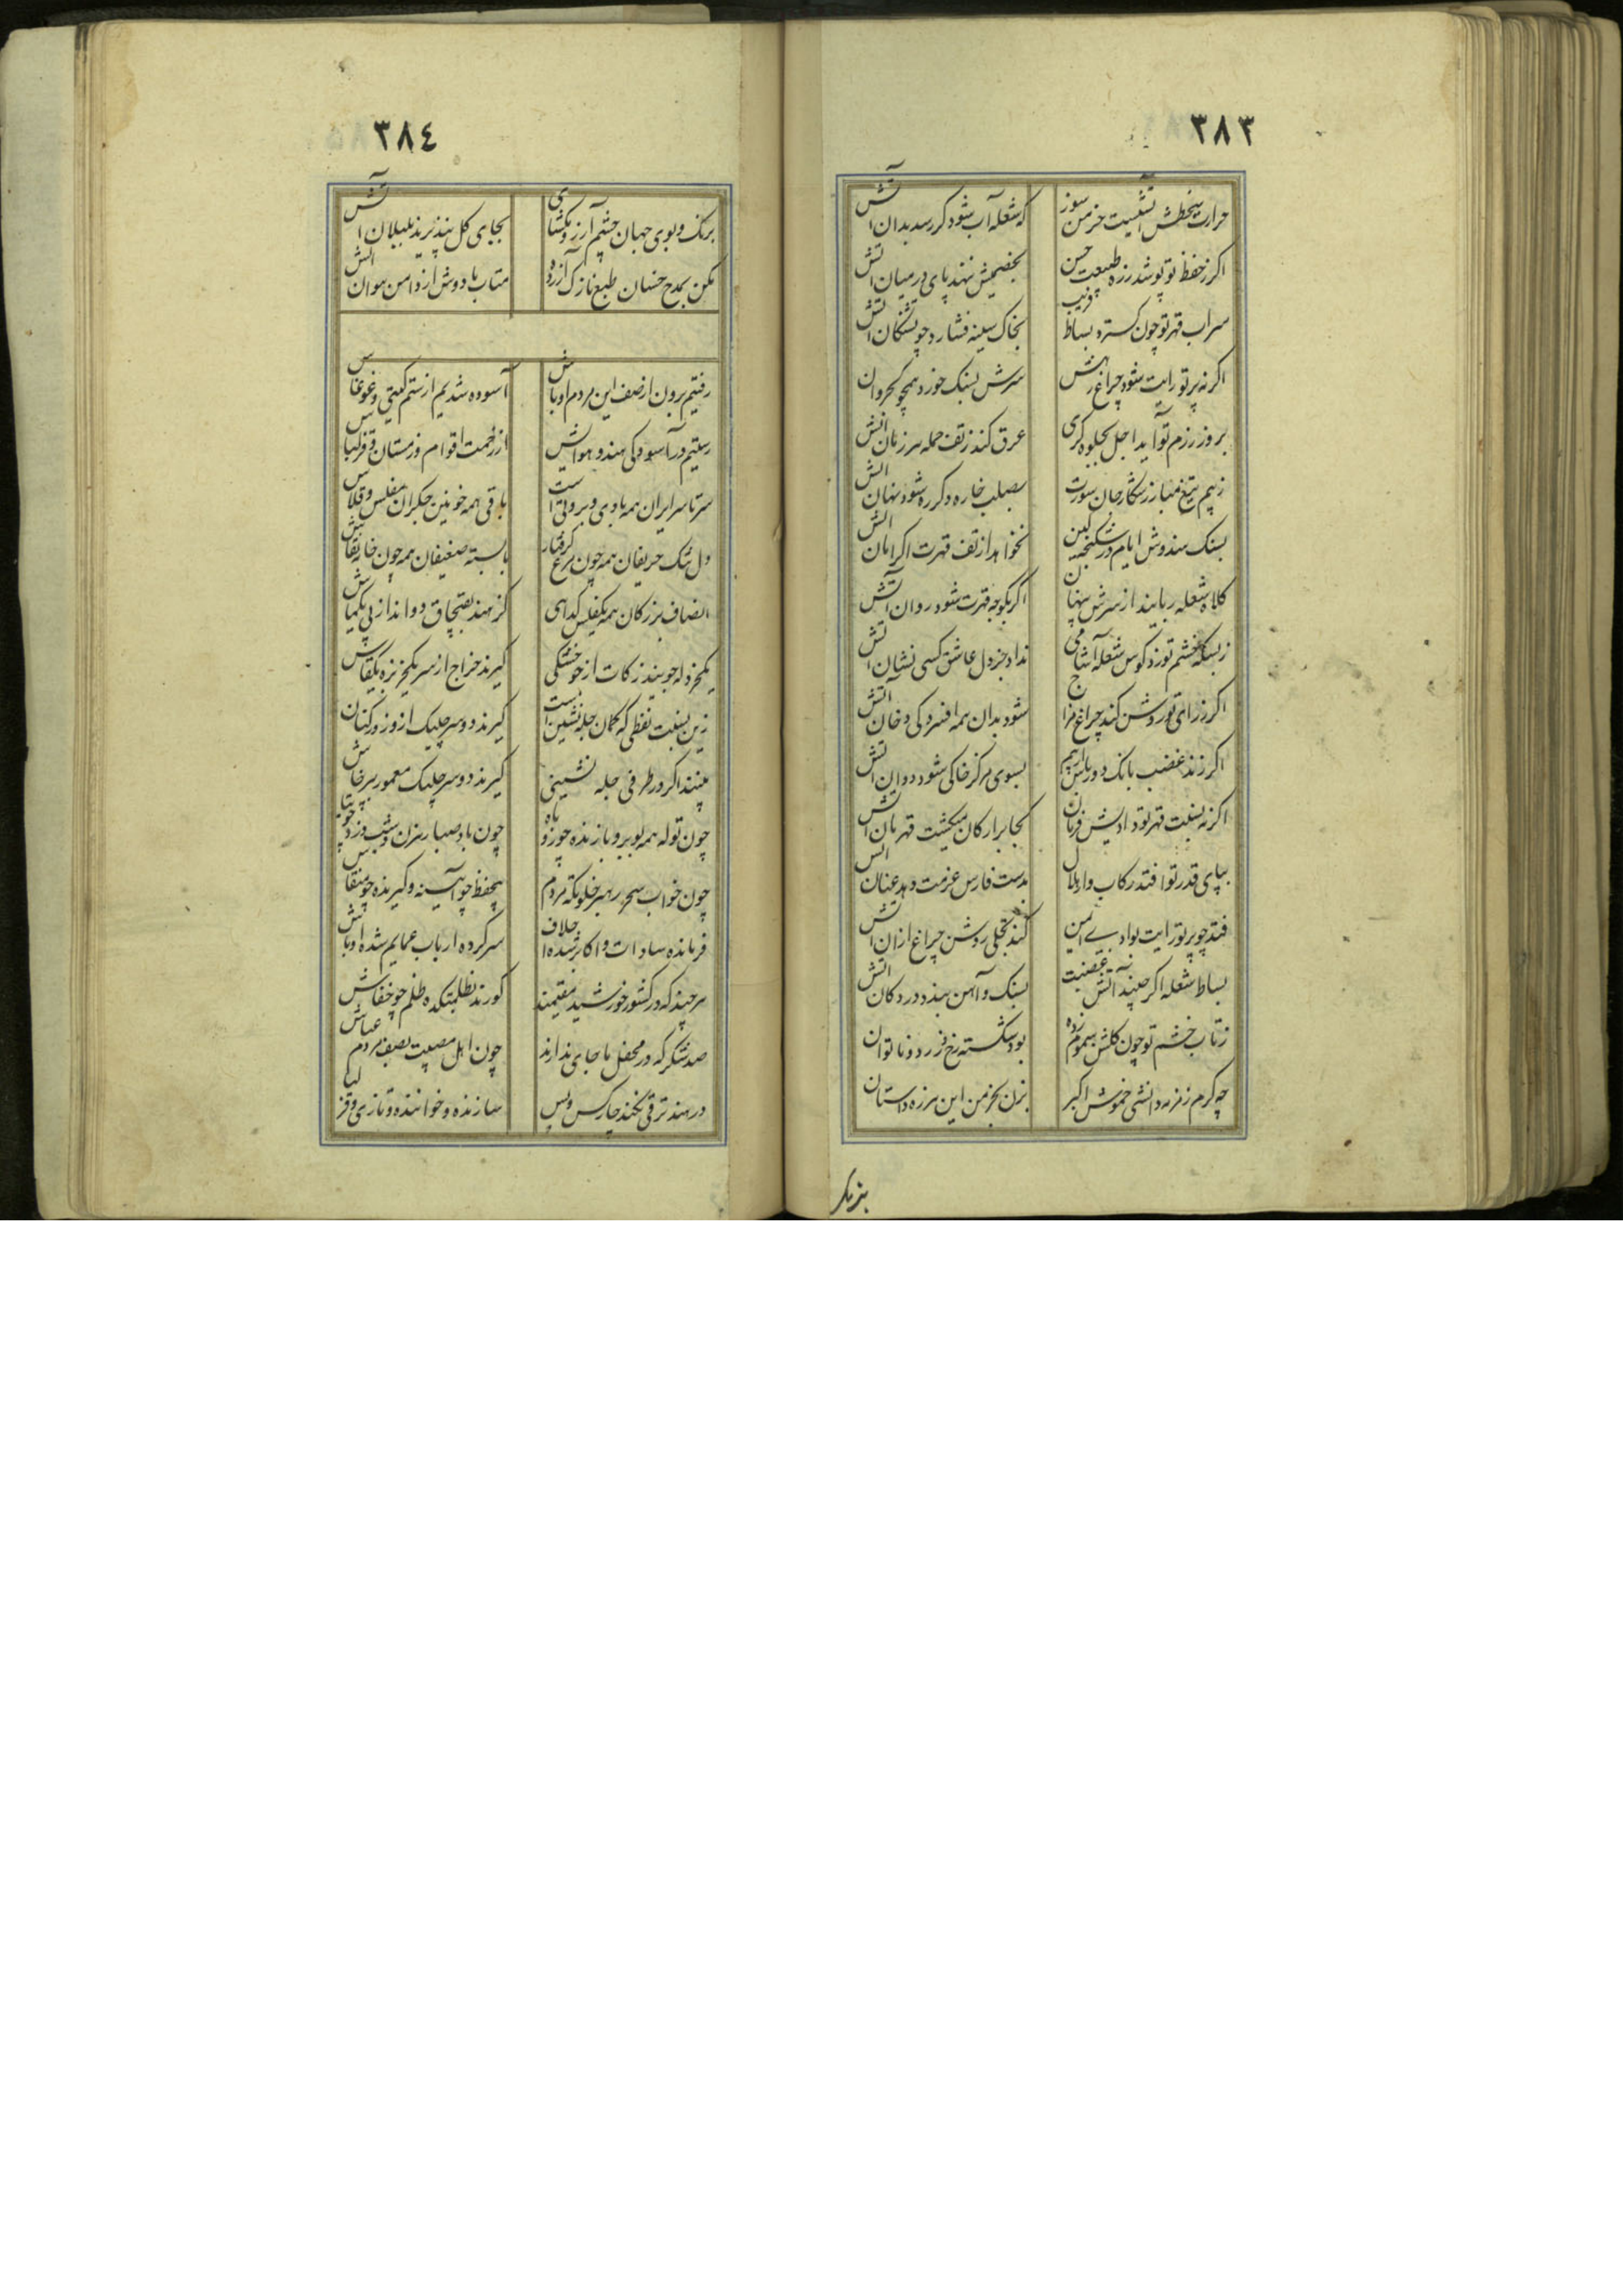 ٣٨٣
حرارت سخطش آتشیست خرمن سوز
که شعله آب شود کر رسد بدان آتش
اکر ز حفظ تو پوشد زره طبیعت حسن
نهد پای در میان آتش
سراب قهر تو چون کسترد بساط فریب
بخاک سینه فشارد چو تشنکان آتش
اکر نه پرتو رایت شود چراغ رهش
سرش بسنک خورد همچو کجروان آتش
بروز رزم تو آید اجل بجلوه کری
عرق کند ز تف حمله هر زمان آتش
ز بیم تیغ مبارز شکار جان سوزت
بصلب خاره دکر ره شود نهان آتش
بسنک هندوش ایام در شکنجه کین
نخواهد از تف قهرت اکر امان آتش
کلاه شعله ربایند از سرش پنهان
اکر بکوچه قهرت شود روان آتش
ز بسکه خشم تو زد کوس شعله آشامی
نداد جز دل عاشق کسی نشان آتش
اکر ز رای تو روشن کند چراغ مزاج
شود بدان همه افسردکی دخان آتش
اکر زند غضبت بانک دورباش بهیم
بسوی مرکز خاکی شود دوان آتش
اکر نه نسبت قهر تو دادیش فرمان
کجا بر ارکان میکشت قهرمان آتش
بپای قدر تو افتد رکاب وار هلال
بدست فارس عزمت دهد عنان آتش
فتد چو پرتو رایت بوادی ایمن
کند تجلی روشن چراغ ازان آتش
بساط شعله اکر چیند آتش غضبت
بسنک و آهن بندد در دکان آتش
ز تاب خشم تو چون کلشن سموم زده
بود شکسته رخ و زرد و ناتوان
چه کرم زمزمه دانشی خموش اکبر
بزن بخرمن این هرزه داستان
بزنک
٣٨٤
برنک و بوی جهان چشم آرزو مکشای
بجای کل نپذیرند بلبلان آتش
مکن بمدح خسان طبع نازک آزرده
متاب با دوش از دامن هوان آتش
رفتیم برون از صف این مردم اوباش
آسوده شدیم از ستم کیتی و غوغاش
رستیم در آسودکی هند و هواش
از زحمت اقوام زمستان و قزلباش
سرتاسر ایران همه بادی و بروتی است
باقی همه خونین جکران مفلس و قلاش
دل تنک حریفان همه چون مرغ کرفتار
پا بسته ضعیفان همه چون خانه نقاش
انصاف بزرکان همه مفلس کدای
کز هند بقبچاق دواند از پی یکماش
یکخردله جویند زکات از خوشکی
کیرند خراج از سر یکخربزه یکقاش
زین نسبت نفظی که کمان چله نشین است
کیرند دو سر چلیک از و زور کتان
بینند اکر در طرفی چله نشینی
کیرند دو سر چلیک معمور پرخاش
چون توله همه بوبر و بازنده چو روباه
چون باد صبا رهزن و شب دزد چو
چون خواب سحر رهبر خلوتکه مردم
بیحفظ چو آیینه و کیرنده چو منقاش
فرمانده سادات و اکابر شده اجلاف
سرکرده ارباب عمایم شده اوباش
هر چند که در کشور خورشید مقیمند
کورند بظلمتکده ظلم چو خفاش
صد شکر که در محفل ما جای ندارند
چون اهل مصیبت بصف مردم عیاش
در هند ترقی نکند چارکس و بس
سازنده و خواننده و تازی و قز